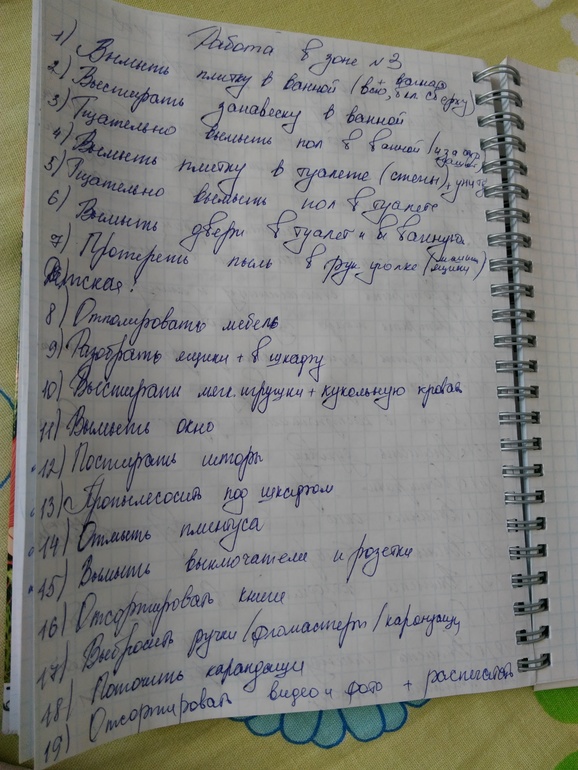 Работа в зоне №3
1) Вымыть плитку в ванной (всю, вкл. сверху) + ванна
2) Выстирать занавеску в ванной
3) Тщательно вымыть пол в ванной (и за
4) Вымыть плитку в туалете (стены) +
5) Тщательно вымыть пол в туалете
6) Вымыть двери в туалет и в ванную
7) Протереть пыль в рук. уголке ( ящики)
Детская:
8) Отполировать мебель
9) Разобрать ящики + в шкафу
10) Выстирать мягк. игрушки + кукольную кровать
11) Вымыть окно
12) Постирать шторы
13) Пропылесосить под шкафом
14) Отмыть плинтуса
15) Вымыть выключатели и розетки
16) Отсортировать книги
17) Выбросить ручки/фломастеры/карандаши
18) Поточить карандаши
19) Отсортировать видео и фото + распечатать